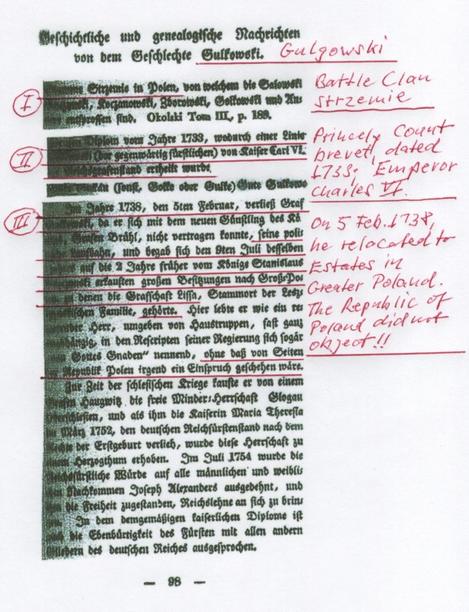 Geschichtliche und genealogische Nachrichten
von dem Geschlechte Gulkowski.
Gulgowski
I
Strzemie in Polen, von welchem die Salowski
Koczanowski, Zborowski, Golkowski und
entsprossen sind. Okolski Tom III, p. 189.
Battle Clan
Strzemie
II
Diplom vom Jahre 1733, wodurch einer Linie
(der gegenwärtig fürstlichen) von Kaiser Carl VI.
Reichsgrafenstand ertheilt wurde
Princely Count
brevet, dated
1733. Emperor
Charles VI.
(sonst, Golko oder Gulke) Gute
III
Im Jahre 1738, den 5ten Februar, verließ Graf
da er sich mit dem neuen Günstling des
Brühl, nicht vertragen konnte, seine
und begab sich den 9ten Juli desselben
auf die 2 Jahre früher vom Könige Stanislaus
erkauften großen Besitzungen nach
zu denen die Grafschaft Lissa, Stammort der
Familie, gehörte. Hier lebte er wie ein
Herr, umgeben von Haustruppen, fast ganz
in den Rescripten seiner Regierung sich sogar
Gottes Gnaden" nennend, ohne daß von Seiten
Republik Polen irgend ein Einspruch geschehen wäre.
On 5 Feb. 1738,
he relocated to
Estates in
Greater Poland.
The Republic of
Poland did not
object!!
Zur Zeit der schlesischen Kriege kaufte er von einem
Haugwitz die freie Minder-Herrschaft Glogau
und als ihm die Kaiserin Maria Theresia
März 1752, den deutschen Reichsfürstenstand nach dem
der Erstgeburt verlieh, wurde diese Herrschaft zu
Herzogthum erhoben. Im Juli 1754 wurde die
Würde auf alle männlichen und
Nachkommen Joseph Alexanders ausgedehnt, und
die Freiheit zugestanden, Reichslehne an sich zu
In dem demgemäßigen kaiserlichen Diplome ist
die Ebenbürtigkeit des Fürsten mit allen andern
des deutschen Reiches ausgesprochen.
— 98 —